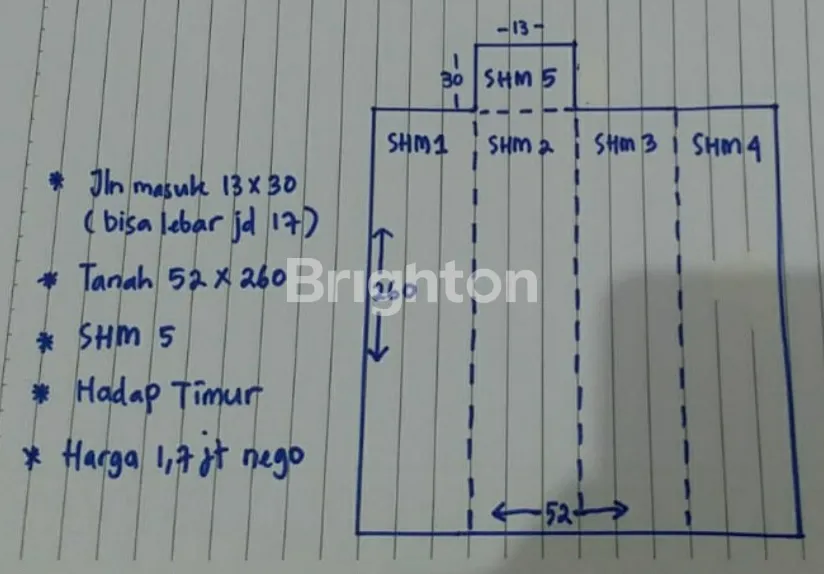 -13-
30
SHM 5
SHM 1
SHM 2
SHM 3
SHM 4
* Jln masuk 13 x 30
(bisa lebar jd 17)
* Tanah 52 x 260
* SHM 5
* Hadap Timur
* Harga 1,7 jt nego
260
52
Brighton